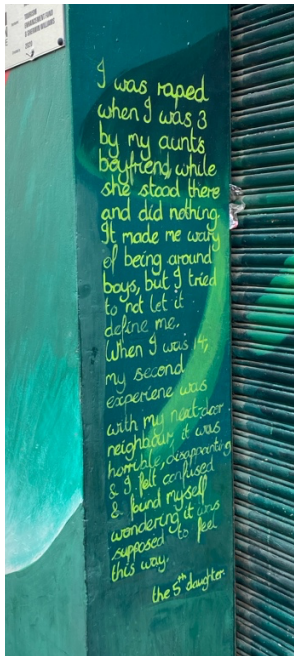 TOURISM
ENHANCEMENT FUND
2020
I was raped
when I was 3
by my aunts
boyfriend, while
she stood there
and did nothing.
It made me wary
of being around
boys, but I tried
to not let it
define me.
When I was 14,
my second
experiene was
with my next-door
neighbour, it was
horrible, disappointing
& I felt confused
& found myself
wondering it was
supposed to feel
this way.
the 5th daughter